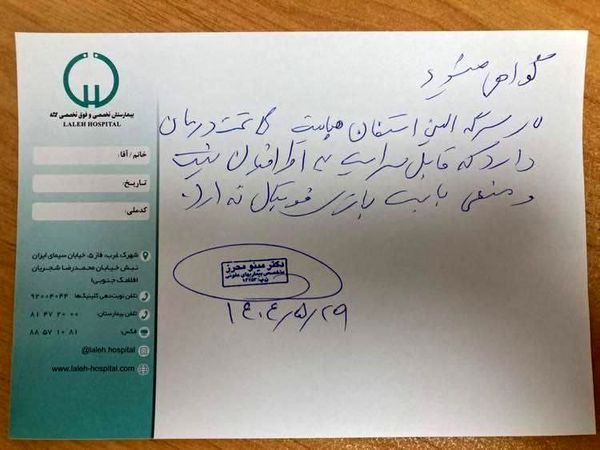 بیمارستان تخصصی و فوق تخصصی لاله
LALEH HOSPITAL
خانم / آقا:
تاریخ:
کدملی:
شهرک غرب، فاز ۵، خیابان سیمای ایران
نبش خیابان محمدرضا شجریان
(فلامک جنوبی)
تلفن نوبت‌دهی کلینیک‌ها: ۹۲۰۰۴۰۴۴
تلفن بیمارستان: ۸۱ ۴۷ ۲۰ ۰۰
فکس: ۸۸ ۵۷ ۱۰ ۸۱
@laleh.hospital
www.laleh-hospital.com
گواهی میشود
سرگه استفان هپاتیت تحت درمان
دارد که قابل سرایت به اطرافیان نیست
و منعی بابت بازی فوتبال ندارد.
دکتر مینو محرز
متخصص بیماریهای عفونی
۱۴۰۴/۵/۲۹